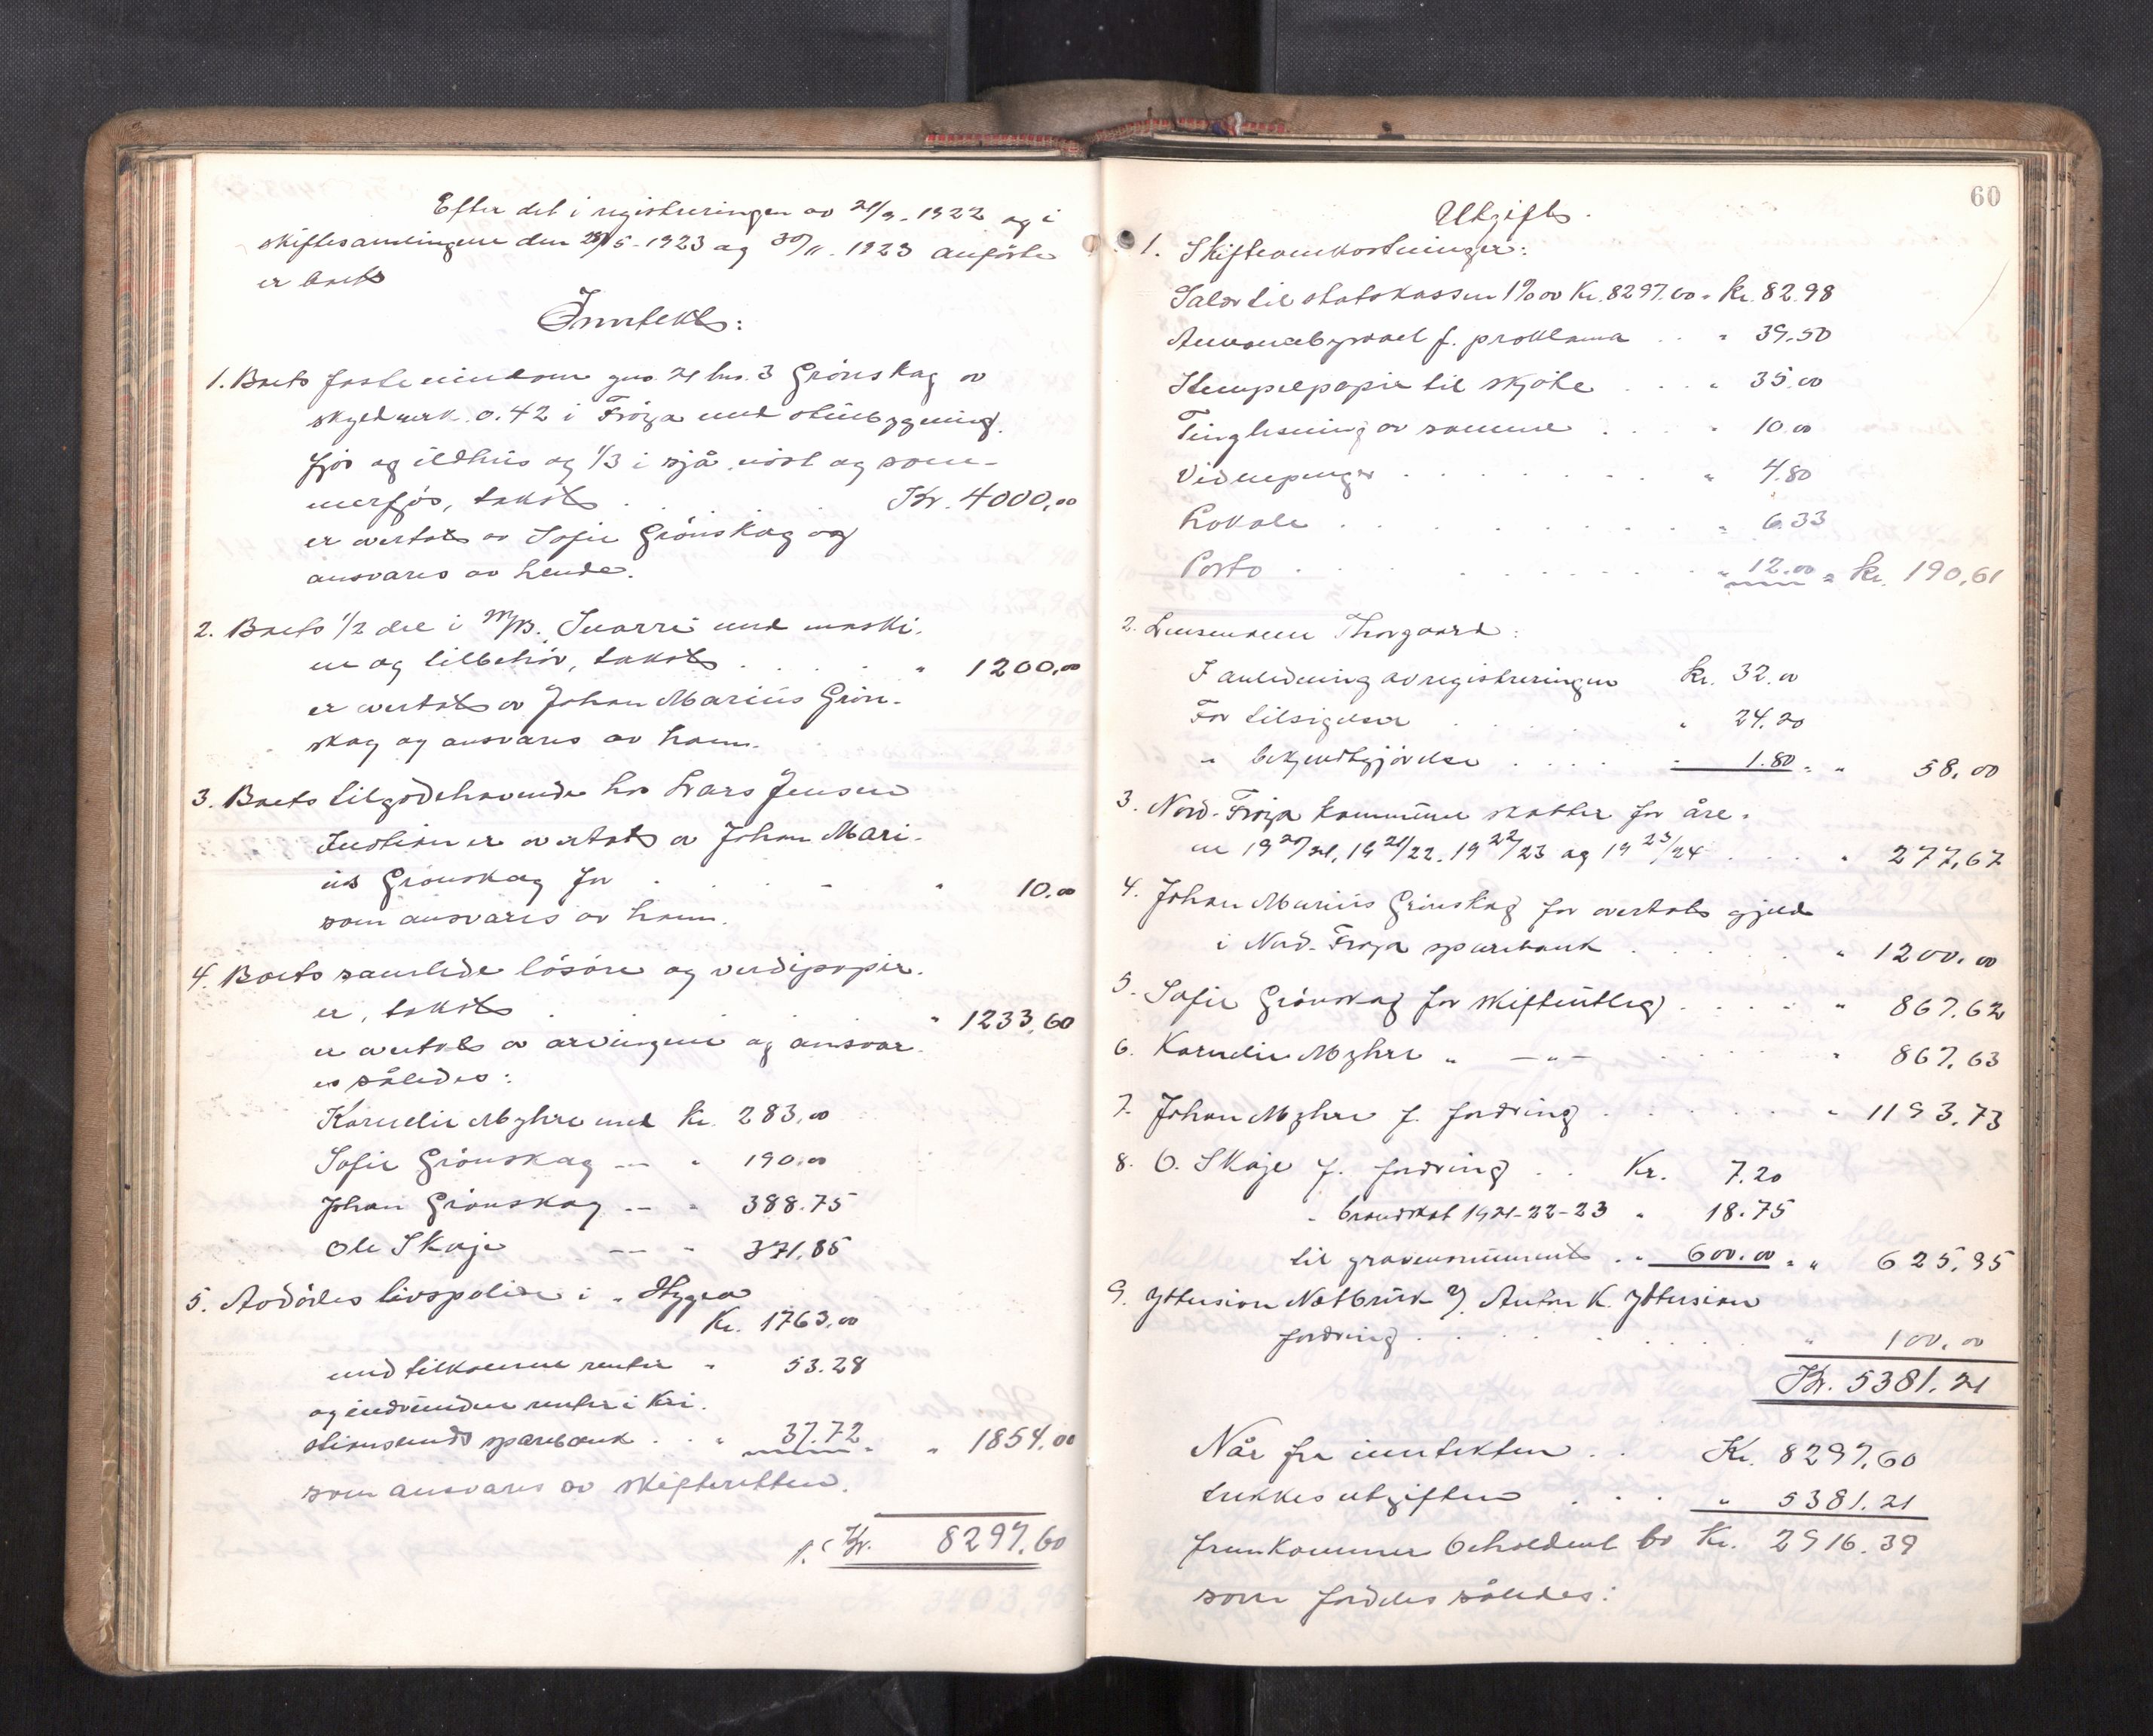 Efter det i registreringen av 21/9-1922 og i
skiftesamlingene den 28/5-1923 og 30/11-1923 anførte
er boets
Inntekt:
1. Boets faste eiendom gno. 21 bno. 3 Grönskag av
skyld mrk. 0.42 i Fröya med stuebygning,
fjös og ildhus og 1/3 i sjå, nöst og som-
merfjös, takst . . . Kr. 4000,00
er overtat av Sofie Grönskag og
ansvares av hende.
2. Boets 1/2 del i M/B. Snarri med maski-
ne og tilbehör, takst . . . . " 1200,00
er overtat av Johan Marius Grön-
skag og ansvares av ham.
3. Boets tilgodehavende hos Lars Jensen
Inntian er overtat av Johan Mari-
us Grönskag for . . . " 10.00
som ansvares av ham.
4. Boets samlede lösöre og verdipapir-
er, takst . . . . " 1233,60
er overtat av arvingene og ansvar-
es således:
Kornelie Myhre med Kr. 283,00
Sofie Grönskag -"- " 190,00
Johan Grönskag -"- " 388.75
Ole Skaje -"- " 371,85
5. Avdödes livspolise i "Hygea
Kr. 1763,00
med tilkomne renter " 53.28
og indvundne renter i Kri-
stiansunds sparebank . . " 37.72 = " 1854,00
som ansvares av skifteretten.
Kr. 8297,60
60
Utgift.
1. Skifteomkostninger:
Salær til statskassen 1% av Kr. 8297.60 = Kr. 82.98
Annoncebyraaet f. proklama . . " 39.50
Stempelpapir til skjöte . . . " 35.00
Tinglesning av samme . . . " 10.00
Vidnepenger . . . . . " 4.80
Lokale . . . . . . " 6.33
Porto . . . . . . " 12.00 = Kr. 190,61
2. Lensmann Thorgaard:
I anledning av registreringen Kr. 32.00
For tilsigelser . . . . " 24.20
" bekjendtgjörelse . . . . " 1.80 = " 58,00
3. Nord-Fröya kommune skatter for åre-
ne 1920/21, 1921/22, 1922/23 og 1923/24 . . . " 277,67
4. Johan Marius Grönskag for overtat gjeld
i Nord-Fröya sparebank . . . . . " 1200.00
5. Sofie Grönskag for skifteutleg . . . . " 867.62
6. Kornelie Myhre " -"- . . . . " 867,63
7. Johan Myhre f. fordring . . . . . " 1193.73
8. O. Skaje f. fordring . . Kr. 7.20
" brandskat 1921-22-23 " 18.75
til gravmonument . " 600.00 = " 625,95
9. Yttersian Notbruk v/ Anton K. Yttersian
fordring . . . . . . " 100.00
Kr. 5381.21
Når fra inntekten . . Kr. 8297,60
trekkes utgiften . . . " 5381.21
fremkommer beholdent bo Kr. 2916.39
som fordeles således: